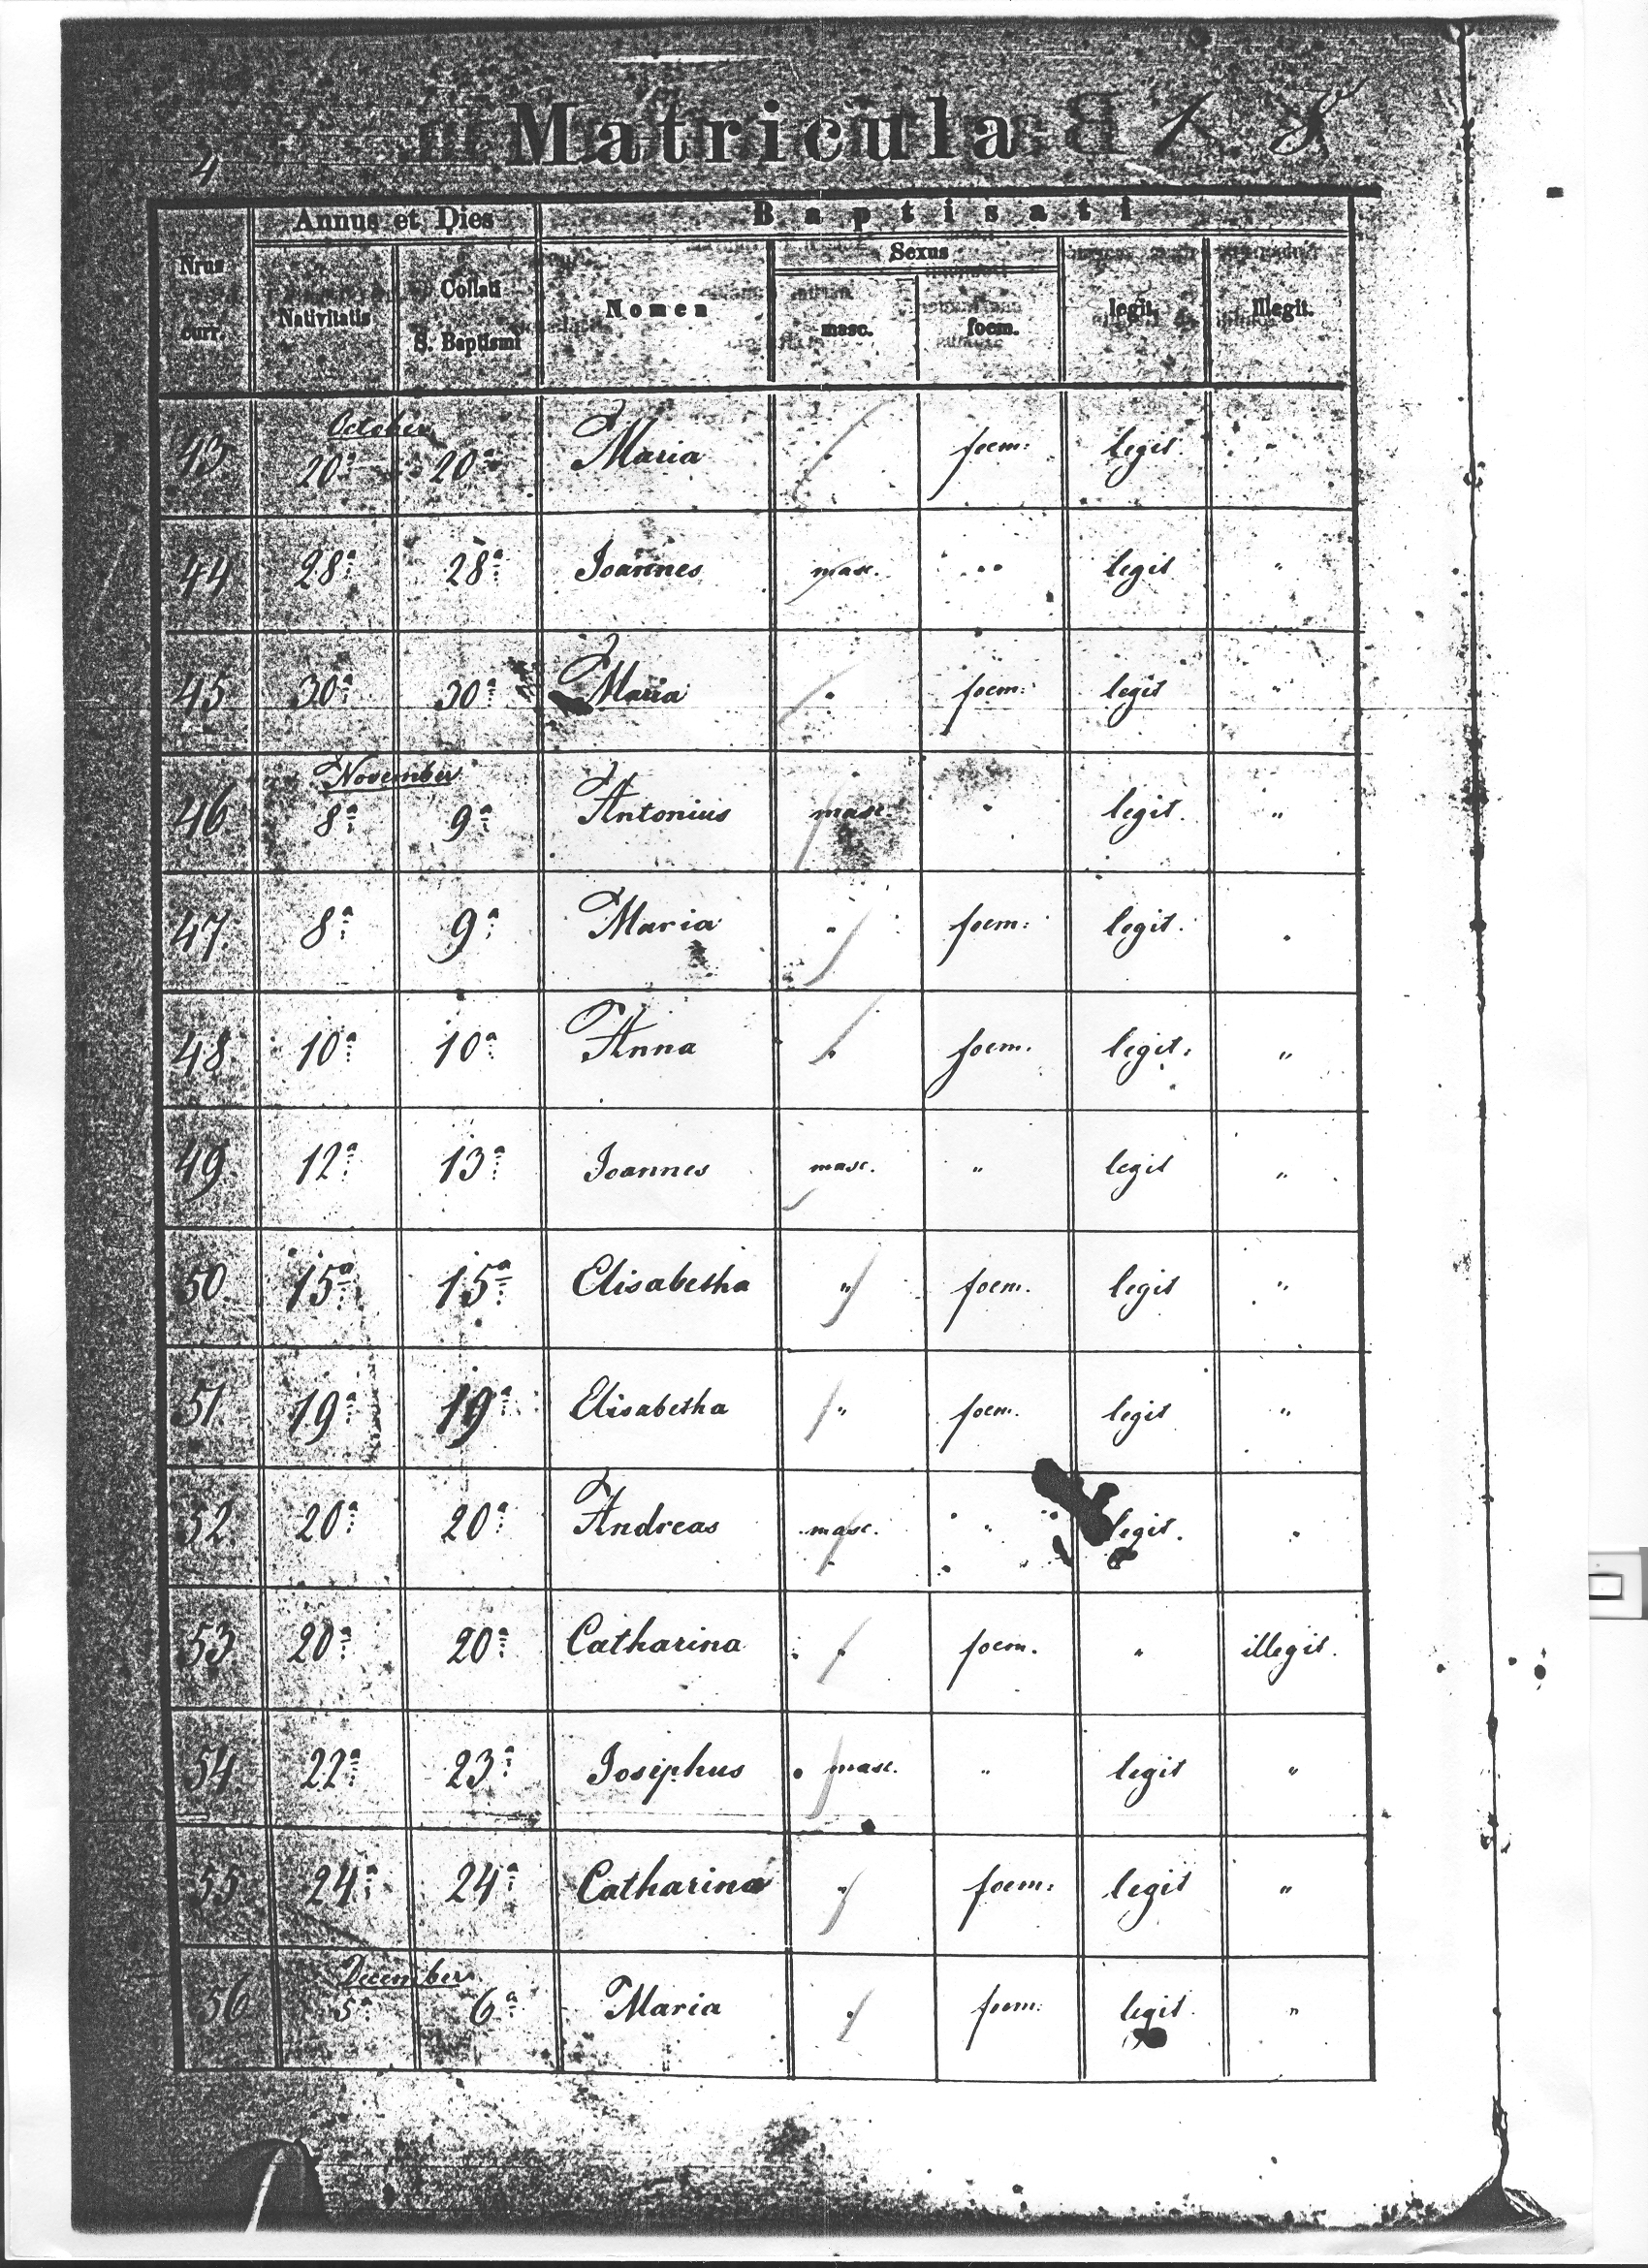 4
Matricula
Annus et Dies
Baptisati
Nrus curr.
Nativitatis
Collati S. Baptismi
Nomen
Sexus
masc.
foem.
legit.
illegit.
October
43 20a 20a Maria " foem: legit. "
44 28a 28a Joannes masc. " legit "
45 30a 30a Maria " foem: legit "
November
46 8a 9a Antonius masc. " legit. "
47 8a 9a Maria " foem: legit. "
48 10a 10a Anna " foem. legit: "
49 12a 13a Joannes masc. " legit "
50 15a 15a Elisabetha " foem. legit "
51 19a 19a Elisabetha " foem. legit "
52 20a 20a Andreas masc. " legit. "
53 20a 20a Catharina " foem. " illegit.
54 22a 23a Josephus masc. " legit "
55 24a 24a Catharina " foem: legit "
December
56 5a 6a Maria " foem: legit. "